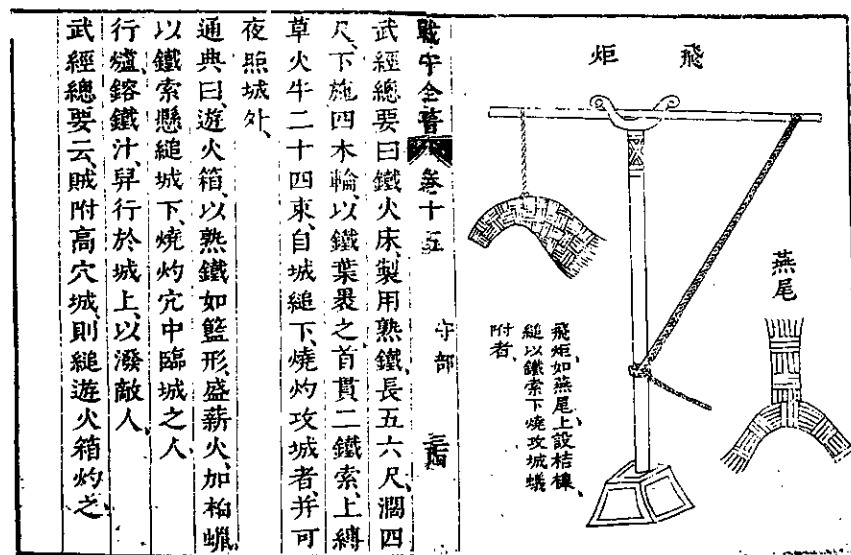 飛炬
燕尾
飛炬如燕尾上設桔槹、
縋以鐵索下燒攻城蟻
附者、
戰守全書 卷十五 守部
武經總要曰鐵火床、製用熟鐵、長五六尺、濶四
尺、下施四木輪、以鐵葉裹之、首貫二鐵索、上縛
草火牛二十四束、自城縋下、燒灼攻城者、并可
夜照城外、
通典曰、遊火箱、以熟鐵如籃形、盛薪火、加柏蠟、
以鐵索懸縋城下、燒灼穴中臨城之人、
行爐、鎔鐵汁、舁行於城上、以潑敵人、
武經總要云、賊附高穴城、則縋遊火箱灼之